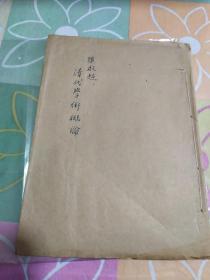 梁啟超
清代學術概論